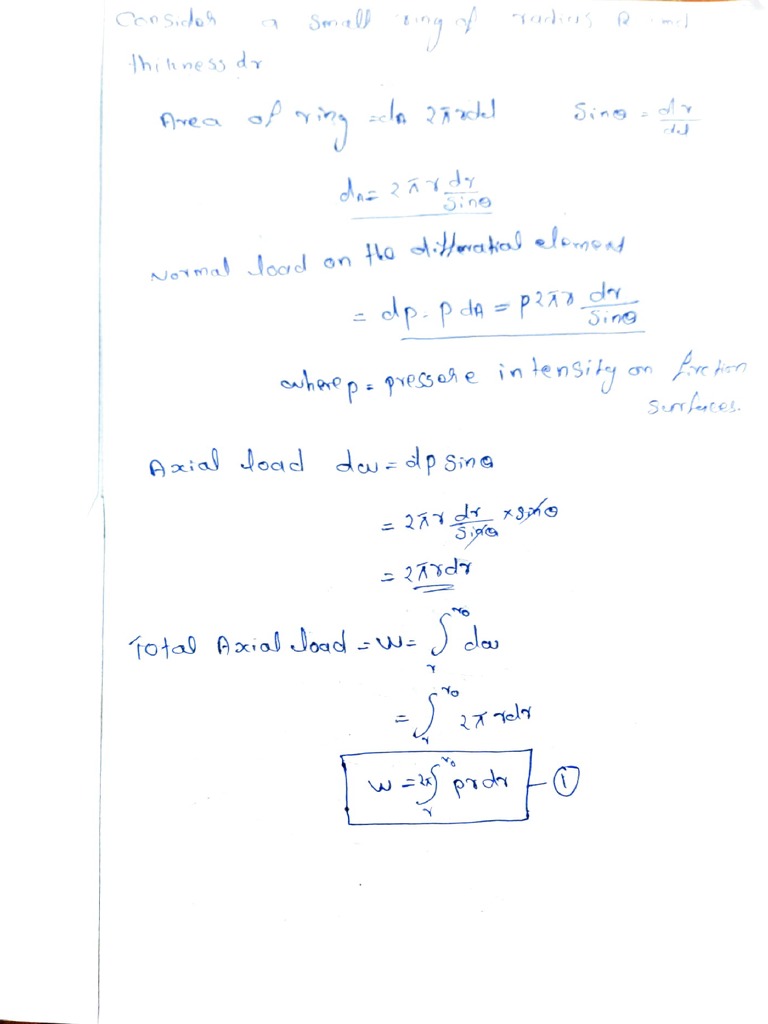 Consider a small ring of radius R and
thikness dr
Area of ring = dA 2πrdl Sinθ = dr/dl
dA = 2πr dr/Sinθ
Normal load on the differatial element
= dp = p dA = p2πr dr/Sinθ
where p = pressure intensity on friction
surfaces.
Axial load dw = dp Sinθ
= 2πr dr/Sinθ × Sinθ
= 2πrdr
Total Axial load = W = ∫ᵣ^r₀ dw
= ∫ᵣ^r₀ 2πrdr
W = 2π∫ᵣ^r₀ prdr - ①